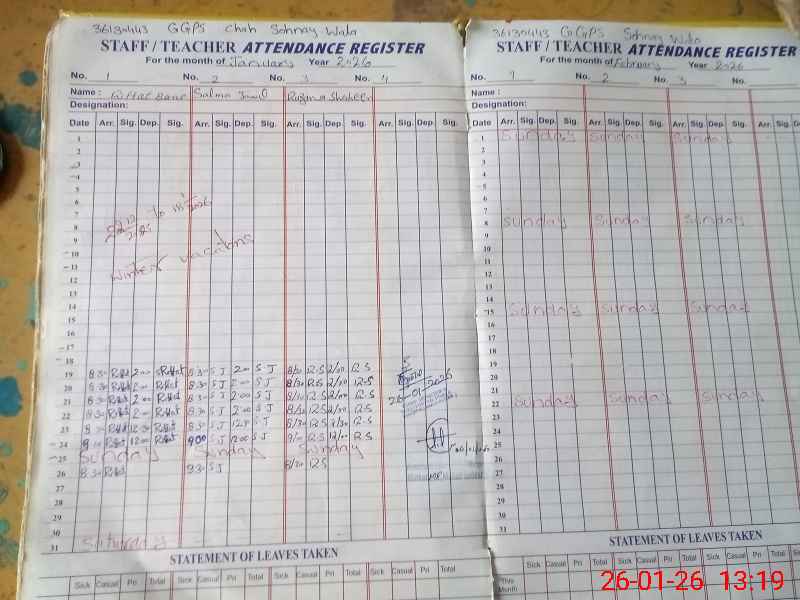 36130443 GGPS Chah Sohnay Wala
STAFF / TEACHER ATTENDANCE REGISTER
For the month of January Year 2026
No. 1 No. 2 No. 3 No. 4
Name : Riffat Bano Salma J Rizwana Shaheen
Designation:
Date Arr. Sig. Dep. Sig. Arr. Sig. Dep. Sig. Arr. Sig. Dep. Sig. Arr. Sig. Dep. Sig.
1
2
3
4
5
6
7
8
9
10
11
12
13
14
15
16
17
18
Winter vacations
19 8.30 Riffat 2.00 Riffat 8.30 S J 2.00 S J 8/30 R.S 2/00 R.S
20 8.30 Riffat 2.00 Riffat 8.30 S J 2.00 S J 8/30 R.S 2/00 R.S
21 8.30 Riffat 2.00 Riffat 8.30 S J 2.00 S J 8/30 R.S 2/00 R.S
22 8.30 Riffat 2.00 Riffat 8.30 S J 2.00 S J 8/30 R.S 2/00 R.S
23 8.30 Riffat 12.30 Riffat 8.30 S J 12.30 S J 8/30 R.S 12/30 R.S
24 9.00 Riffat 12.00 Riffat 9.00 S J 12.00 S J 9/00 R.S 12/00 R.S
25 Sunday Sunday Sunday
26 8.30 Riffat 8.30 S J 8/30 R.S
27
28
29
30
31 Saturday
26-01-2026
STATEMENT OF LEAVES TAKEN
Sick Casual Pri Total Sick Casual Pri Total Sick Casual Pri Total Sick Casual Pri Total
36130443 GGPS Sohnay Wala
STAFF / TEACHER ATTENDANCE REGISTER
For the month of February Year 2026
No. 1 No. 2 No. 3 No.
Name :
Designation:
Date Arr. Sig. Dep. Sig. Arr. Sig. Dep. Sig. Arr. Sig. Dep. Sig. Arr.
1 Sunday Sunday Sunday
2
3
4
5
6
7
8 Sunday Sunday Sunday
9
10
11
12
13
14
15 Sunday Sunday Sunday
16
17
18
19
20
21
22 Sunday Sunday Sunday
23
24
25
26
27
28
29
30
31
STATEMENT OF LEAVES TAKEN
This Month Sick Casual Pri Total Sick Casual Pri Total Sick Casual Pri Total
26-01-26 13:19